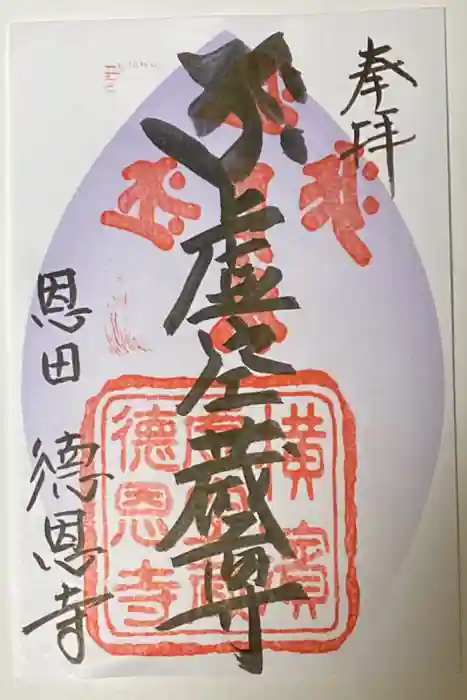 奉拝
虚空蔵尊
恩田 徳恩寺
横濱
徳恩寺